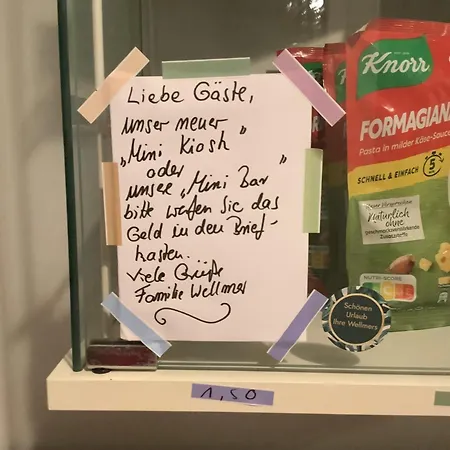 Liebe Gäste,
unser neuer
„Mini Kiosk"
oder
unsere „Mini Bar"
bitte werfen Sie das
Geld in den Brief-
kasten...
Viele Grüße
Familie Wellmer
1,50
Knorr
FORMAGIANA
Pasta in milder Käse-Sauce
SCHNELL & EINFACH
5
Natürlich
ohne
NUTRI-SCORE
Schönen
Urlaub
Ihre Wellmers